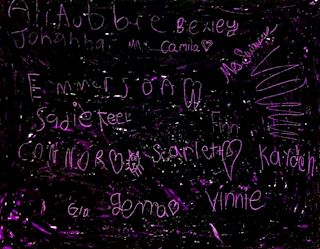 Ali Aubbie Bexley
Johanna Camila
Emmerson
Sadie Keef Finn
CONNOR Scarlett Kayden
Gia gemma Vinnie